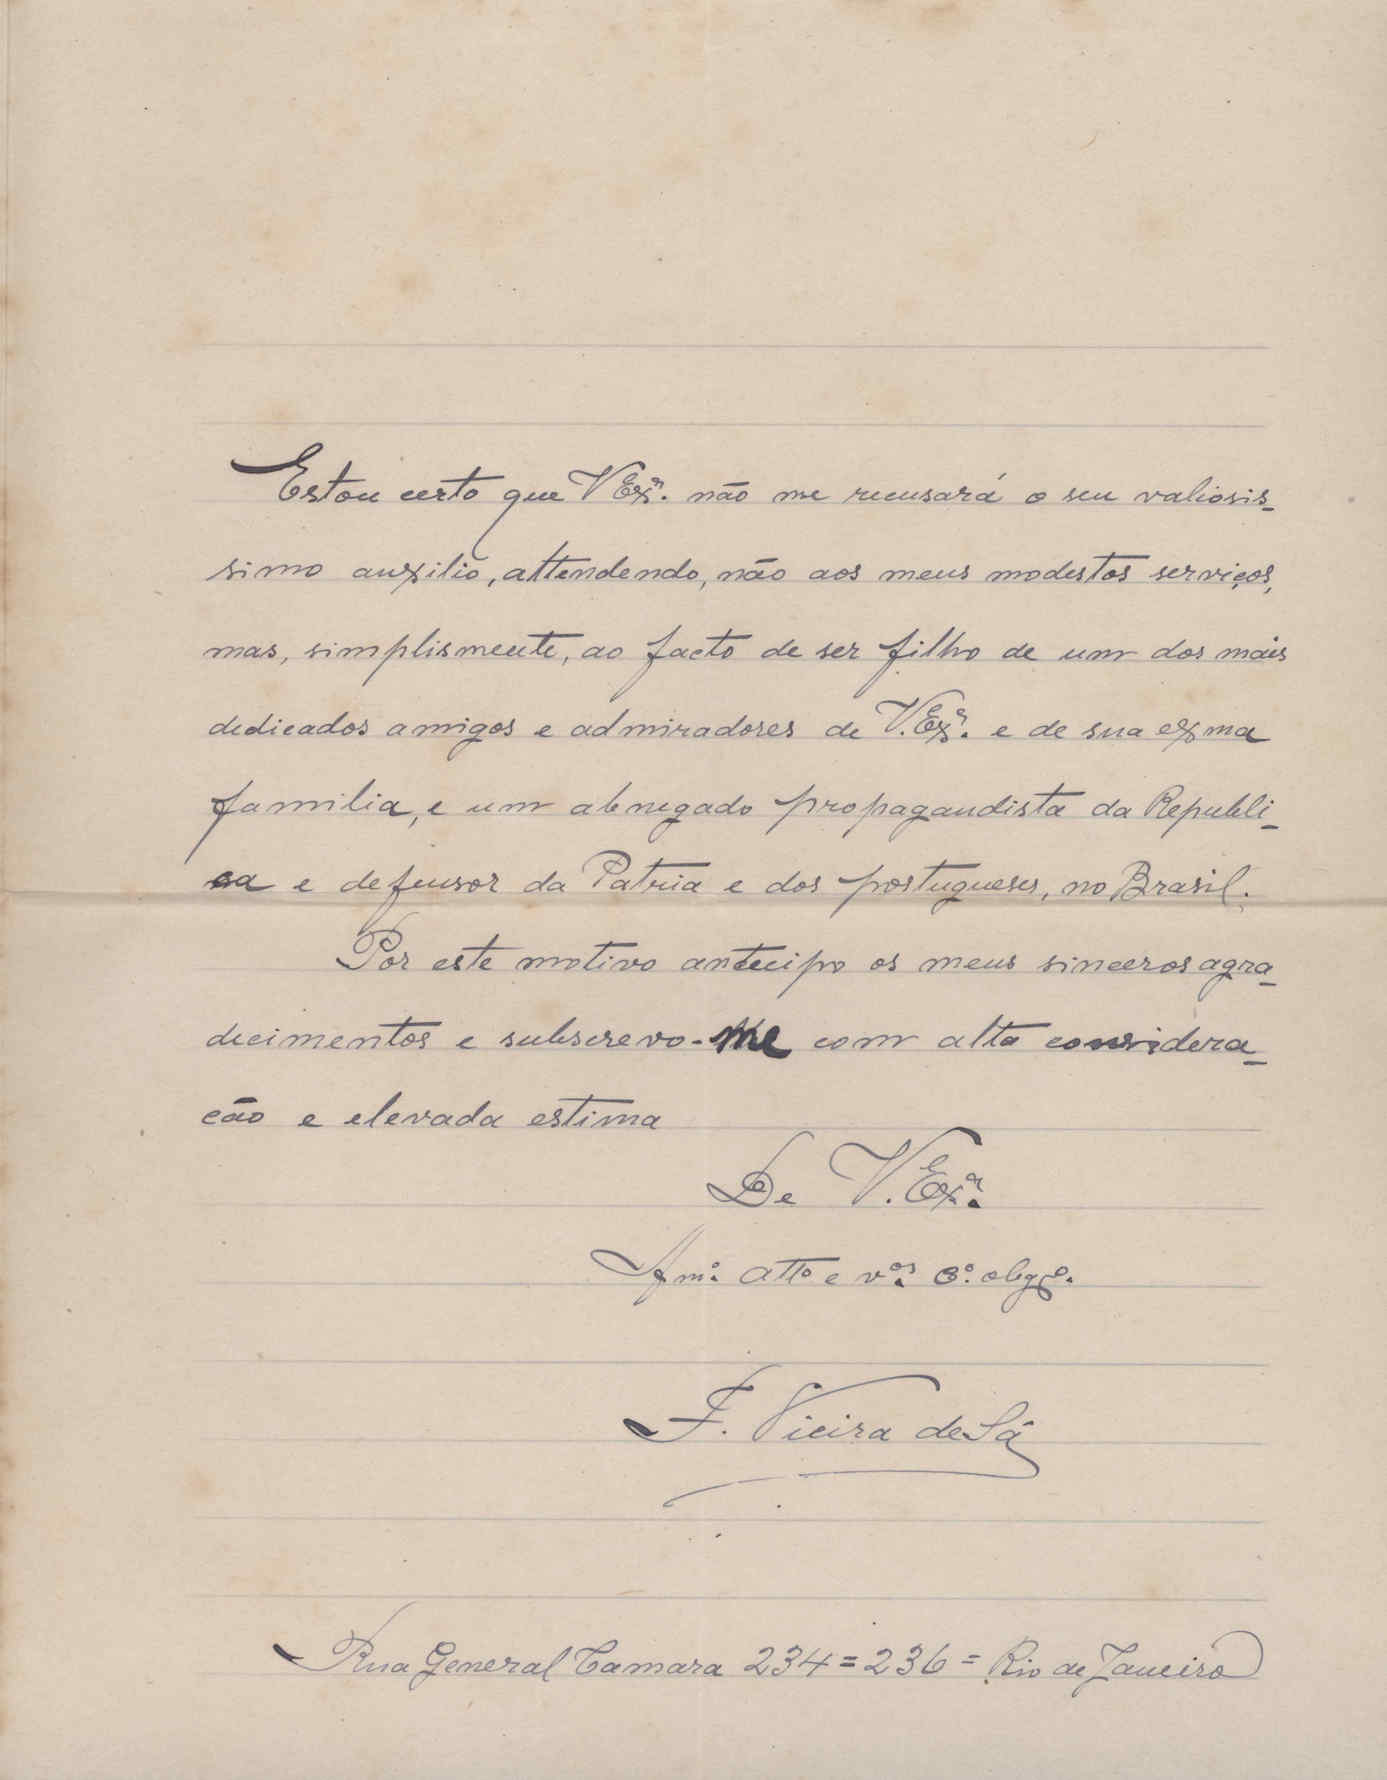 Estou certo que V Exª. não me recusará o seu valiosis-
simo auxilio, attendendo, não aos meus modestos serviços,
mas, simplismente, ao facto de ser filho de um dos mais
dedicados amigos e admiradores de V. Exª. e de sua exma
familia, e um abnegado propagandista da Republi-
ca e defensor da Patria e dos portugueses, no Brasil.
Por este motivo antecipo os meus sinceros agra-
decimentos e subscrevo-me com alta considera-
cão e elevada estima
De V. Exª.
Amº. attº e vºʳ. Cº. obgᵈº.
F. Vieira de Sá
Rua General Camara 234=236= Rio de Janeiro